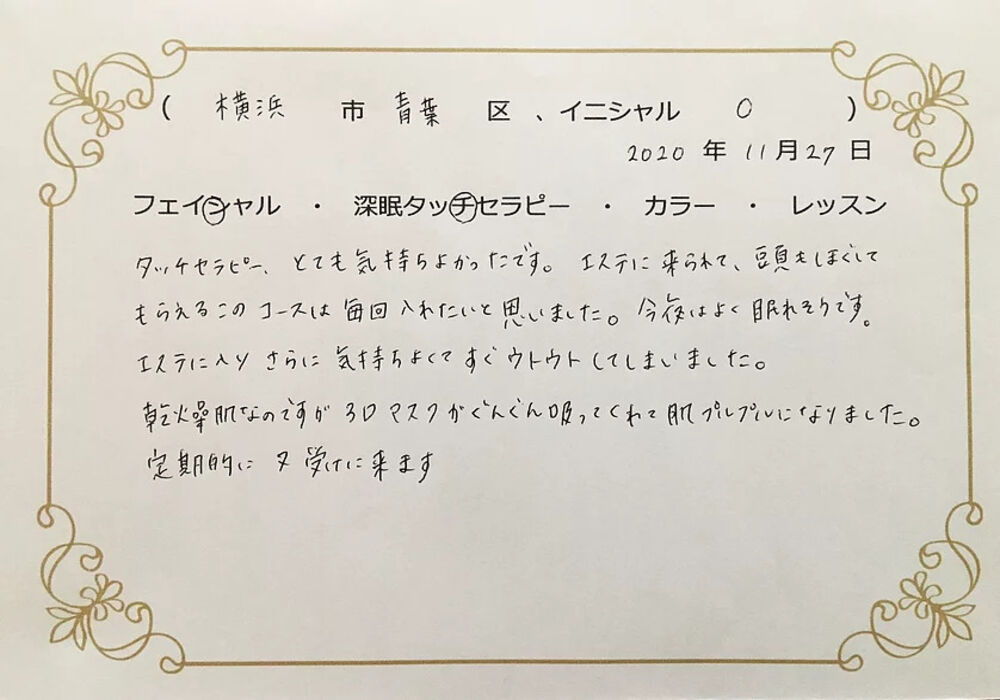 ( 横浜 市 青葉 区 、イニシャル O )
2020 年 11 月 27 日
フェイシャル ・ 深眠タッチセラピー ・ カラー ・ レッスン
タッチセラピー、とても気持ちよかったです。エステに来られて、頭もほぐして
もらえるこのコースは毎回入れたいと思いました。今夜はよく眠れそうです。
エステに入りさらに気持ちよくてすぐウトウトしてしまいました。
乾燥肌なのですが3Dマスクがぐんぐん吸ってくれて肌プルプルになりました。
定期的に又受けに来ます